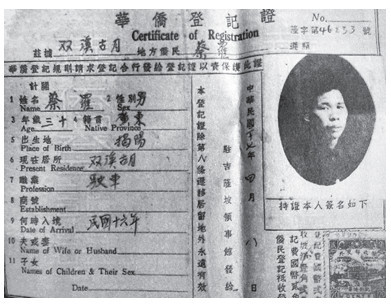 華僑登記證
No.
Certificate of Registration
茲據 双溪古月 地方僑民 蔡羅
華僑登記規則請求登記合行發給登記證以資保護此證
計開
1 姓名 蔡羅 2 性別 男
Name Sex
3 年歲 三十 4 籍貫 廣東
Age Native Province
5 出生地 揭陽
Place of Birth
6 現在居所 双溪古月
Present Residence
7 職業 駛車
Profession
8 商號
Establishment
9 何時入境 民國十六年
Date of Arrival
10 夫或妻
Name of Wife or Husband
11 子女
Names of Children & Their Sex
Date
本登記證除第八條遷移居留地外永遠有效
中華民國
年 四月 八日
駐吉隆坡領事館發給
持證本人簽名如下